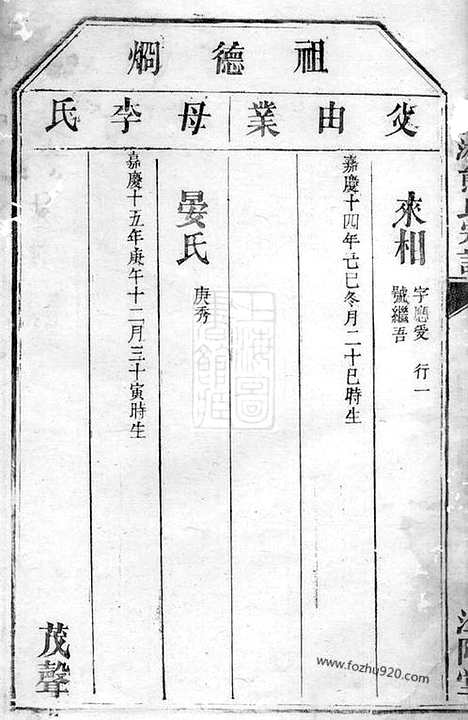 祖德烱
父由業
母李氏
來相
字應愛 行一
號繼吾
嘉慶十四年亡巳冬月二十巳時生
晏氏
庚秀
嘉慶十五年庚午十二月三十寅時生
茂聲
上海圖書館藏
www.fozhu920.com